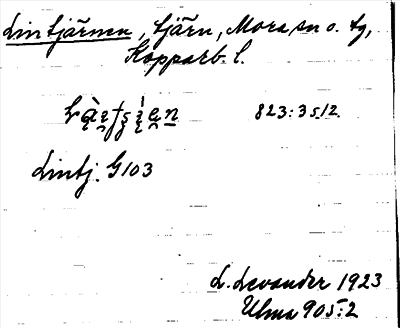 Lintjärnen, tjärn, Mora sn o. tg,
Kopparb. l.
823:3512.
Lintj. G103
L. Levander 1923
Ulma 905:2